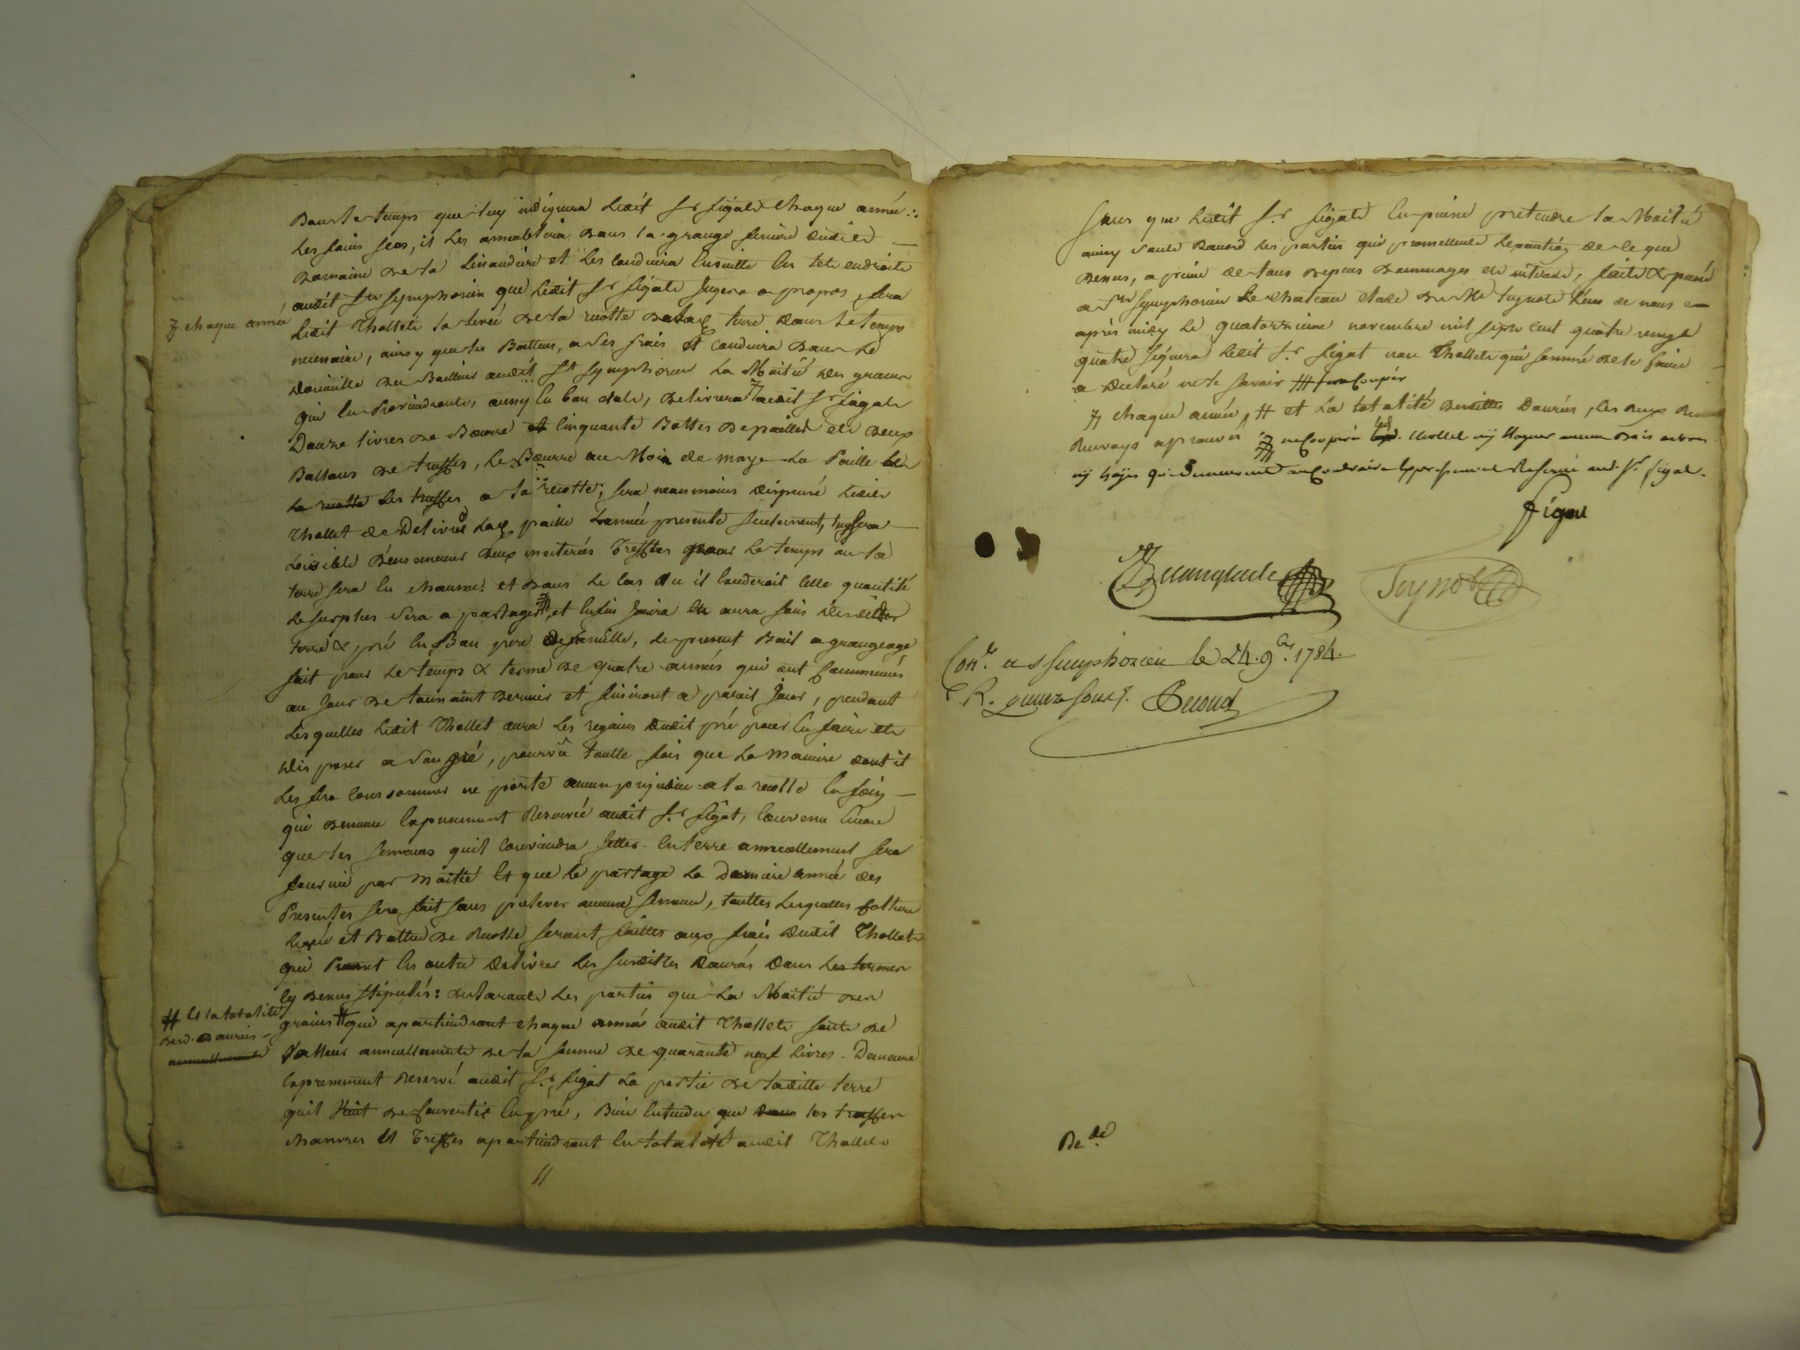 Dans le temps que luy indiquera ledit Sr figat chaque année :.
les foins secs, il les amenblera dans la grange feniere dudit
Domaine de la et les conduira ensuitte en tel endroits
audit St Symphorien que ledit Sr figat jugera a propos, sera
⁊ chaque année
ledit Thollet la levée de la recotte de lad. terre dans le temps
necessaire, ainsy que les Battera, a ses frais et conduira dans le
domicille du Bailleur audit St Symphorien la Moitié des grains
qui en Proviendronts, aussy en bon etat, delivrera ⁊ audit Sr figat
Douze livres de Beurre et cinquante Bottes de paille et deux
de truffes, le Beurre au Mois de may la Paille
la recotte les truffes a la recotte; sera neanmoins dispensé ledit
Thollet de Delivrer lad. paille l'année presente seulement, luy sera
loisible d'ensemencer deux meterées Treffles dans le temps ou la
terre sera en chaume; et dans le cas ou il excederoit cette quantité
le surplus sera a partager, et enfin jouira et aura soin desdits
terre & pré en Bon pere de famille, le present Bail a grangeage
fait pour le temps & terme de quatre années qui ont commencées
au jour de toussaint dernier et finiront a pareil jour, pendant
lesquelles ledit Thollet aura les regains dudit pré pour en faire et
disposer a son gré, pourvû toutte fois que la maniere dont il
les fera consommer ne porte aucun prejudice a la recotte en foin
qui demeure expressement Reservée audit Sr figat, convenu encore
que les semences quil conviendra jetter en terre annuellement sera
fournie par moitié et que le partage la Derniere année des
Presentes sera fait sans prelever aucune semence, touttes lesquelles culture
levée et Battue de Recotte seront faittes aux frais dudit Thollet
qui en outre delivrer les susdittes Danrés dans les termes
cy dessus stipulés: declarants les parties que la Moitié des
# et la totalité
desd. Danrés
annuellement
grains # qui apartiendront chaque année audit Thollet sont de
Valleur annuellement de la somme de quarante neuf livres. Demeure
expressement Reservé audit Sr figat la partie de laditte terre
quil vient de convertir en pré, Bien entendu que dans les truffes
chanvres et Treffles apartiendront en totalité audit Thollet
//
sans que ledit Sr figat en puisse pretendre la Moitié
ainsy sont d'acord les parties qui promettent l'execution de ce que
dessus, a peine de tous depens dommages et interets, fait & passé
a St Symphorien le chateau etude de Me Teynot l'un de nous
après midy le quatorzieme novembre mil sept cent quatre vingt
quatre signera ledit Sr figat non Thollet qui sommé de le faire
a declaré ne le savoir
⁊ chaque année, # et la totalité desdittes Danrés, les deux
Renvoys aprouvés led. thollet ny
qui demeurent au contraire expressement Reservé aud. Sr figat.
figat
Teynot
Conlé a St Simphorien le 24. 9bre. 1784.
R. quinze sous
De de